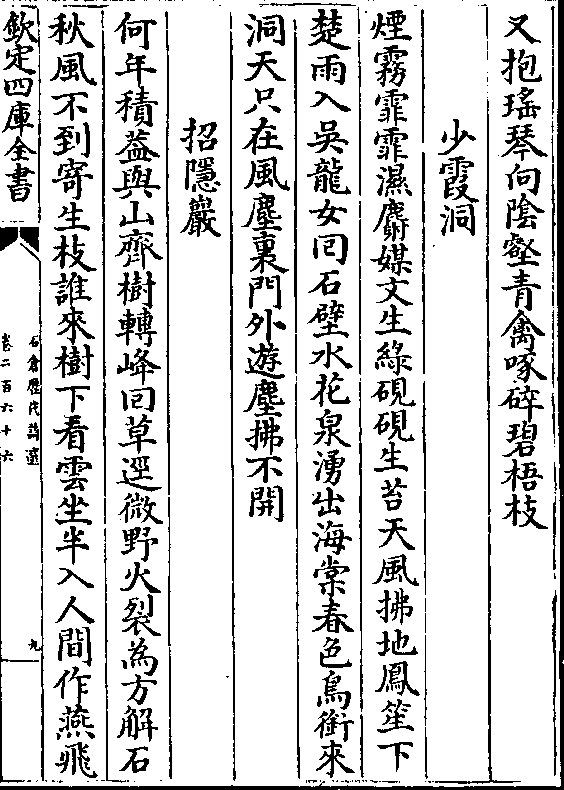 又抱瑤琴向陰壑青禽啄碎碧梧枝
少霞洞
煙霧霏霏濕麝媒文生綠硯硯生苔天風拂地鳳笙下
楚雨入吳龍女囘石壁水花泉湧出海棠春色鳥銜來
洞天只在風塵裏門外遊塵拂不開
招隱巖
何年積葢與山齊樹轉峰囘草逕微野火裂為方解石
秋風不到寄生枝誰來樹下看雲坐半入人間作燕飛
欽定四庫全書
石倉歷代詩選
卷二百六十六
九